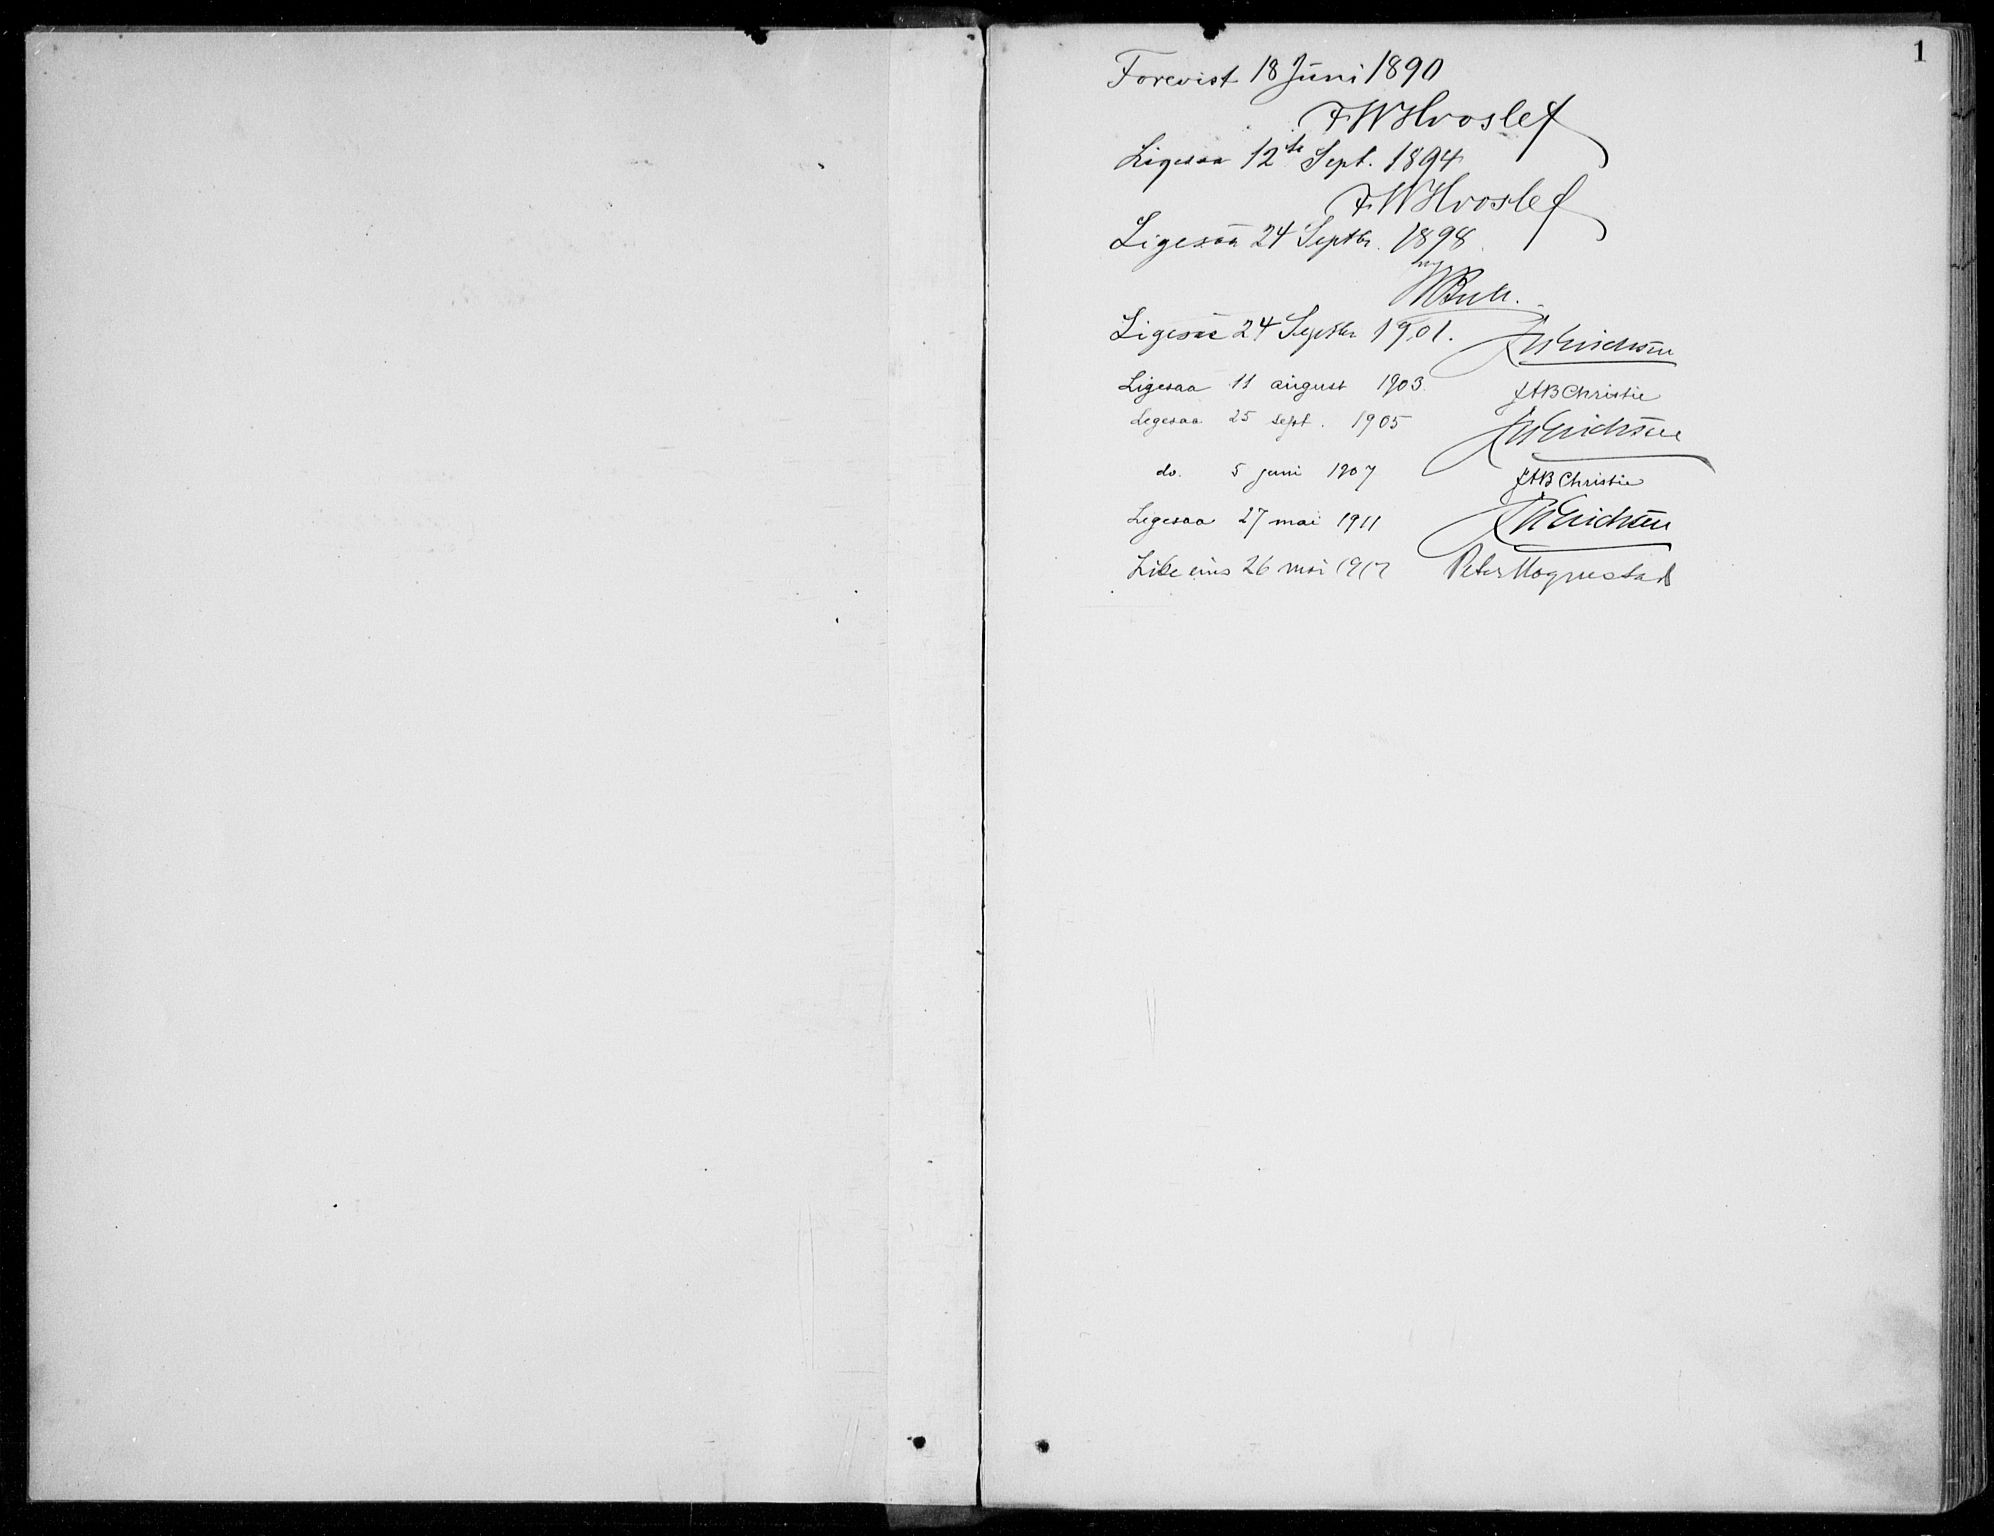 1
Forevist 18 Juni 1890
FWHvoslef
Ligesaa 12te Sept. 1894
FWHvoslef
Ligesaa 24 Septbr. 1898
Ligesaa 24 Septbr 1901. Erichsen
Ligesaa 11 august 1903. JAB Christie
Ligesaa 25 sept. 1905 Erichsen
do. 5 juni 1907 JAB Christie
Ligesaa 27 mai 1911 Erichsen
Like eins 26 mai 1917 Peter Hognestad